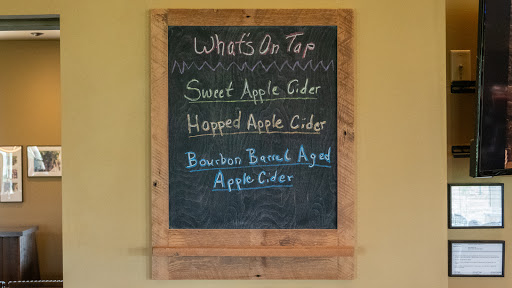 What's On Tap
Sweet Apple Cider
Hopped Apple Cider
Bourbon Barrel Aged
Apple Cider